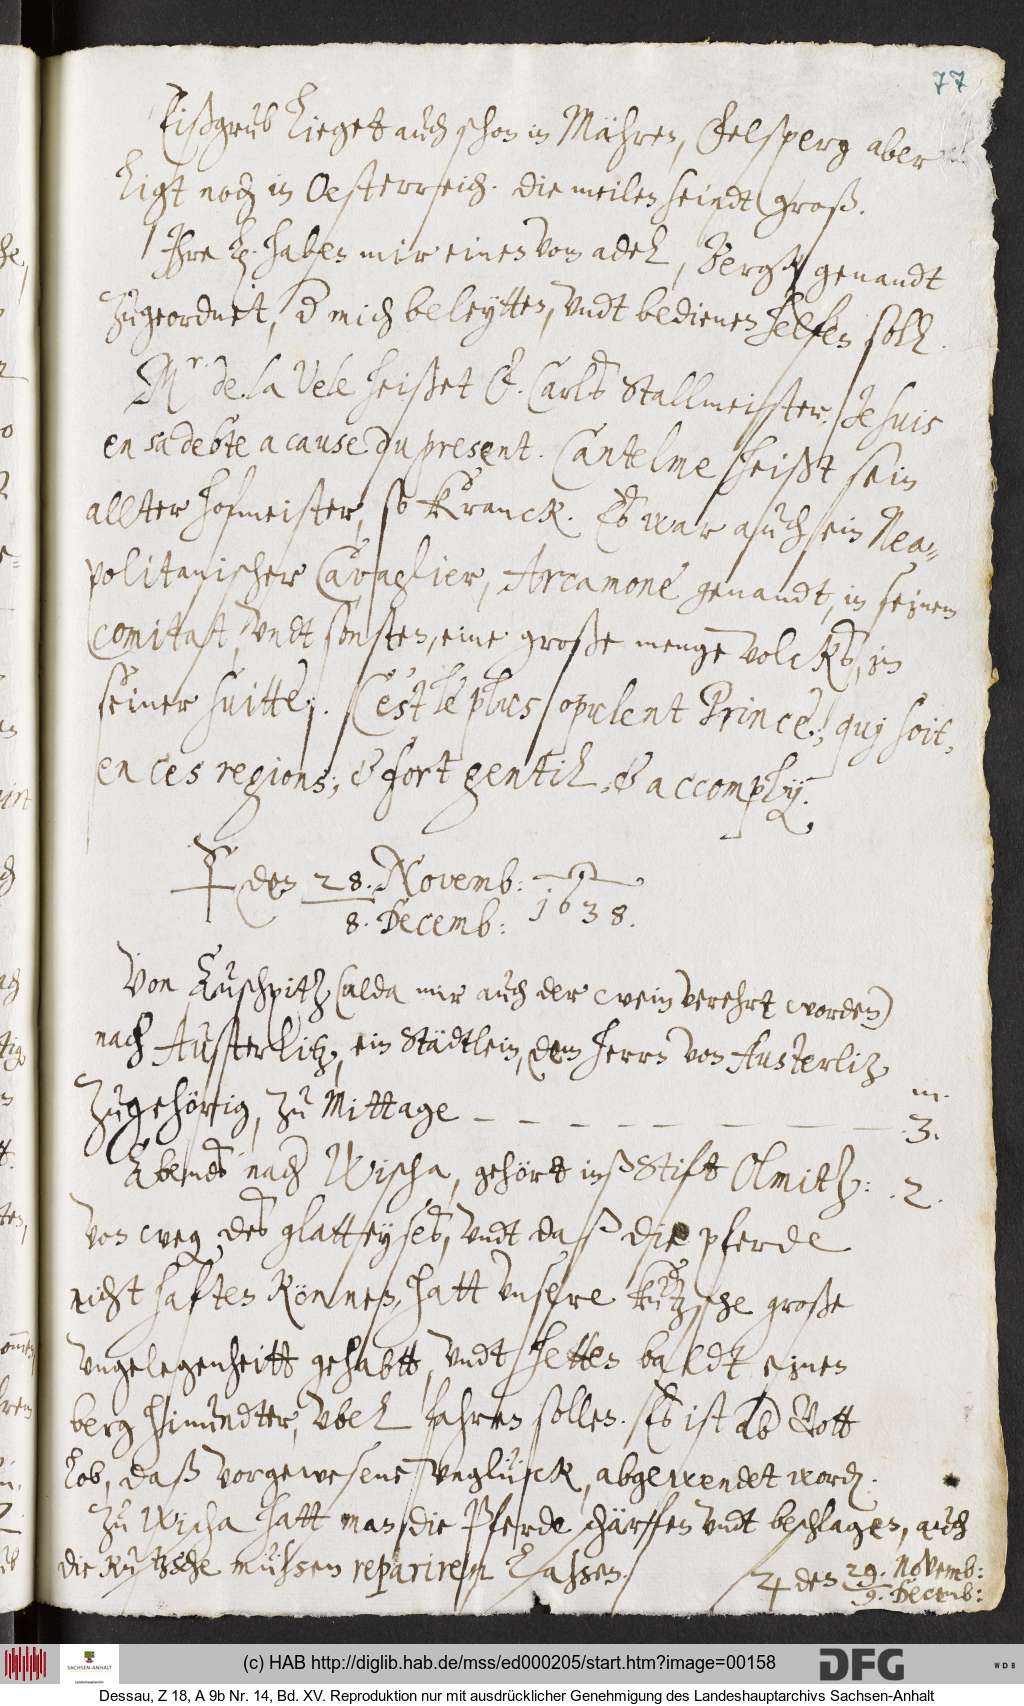 77
Eißgrub lieget auch schon in Mähren, Felsperg aber
ligt noch in Oesterreich. die meilen seindt groß.
Ihre haben mir einen von adel, genandt
zugeordnet, d mich beleytten, vndt bedienen helfen soll.
Mr. de la Vele heißet E. Carls Stallmeister. Je suis
en sa debte a cause du present. Cantelme heißt sein
allter hofmeister, so kranck. Es war auch ein Nea=
politanischer Cavaglier, Arcamone genandt, in seinem
comitat, vndt sonsten, eine große menge volcks, in
seiner suitte;. C'est le plus opulent Prince, quj soit,
en ces regions; & fort gentil, & accomply.
☿ den 28. Novemb: 1638.
8. Decemb:
Von Auschpitz (alda mir auch der wein verehrt worden)
nach Austerlitz, ein Städtlein, dem herrn von Austerlitz
m.
zugehörig, zu Mittage – – – – – – – 3.
Abends nach Wischa, gehört inß Stifft Olmitz: . 2.
Von weg des glatteyses, vndt daß die pferde
nicht haften können, hatt vnsere kutzsche große
vngelegenheitt gehabtt, vndt hetten baldt einen
berg hinundter, vbel fahren sollen. Es ist ab Gott
lob, daß vorgewesene vnglück, abgewendet word.
Zu Wischa hatt man die Pferde schärffen vndt beschlagen, auch
die kutzsche müßen repariren laßen.
♃ den 29. Novemb:
9. Decemb:
(c) HAB http://diglib.hab.de/mss/ed000205/start.htm?image=00158
SACHSEN-ANHALT
DFG
WDB
Dessau, Z 18, A 9b Nr. 14, Bd. XV. Reproduktion nur mit ausdrücklicher Genehmigung des Landeshauptarchivs Sachsen-Anhalt